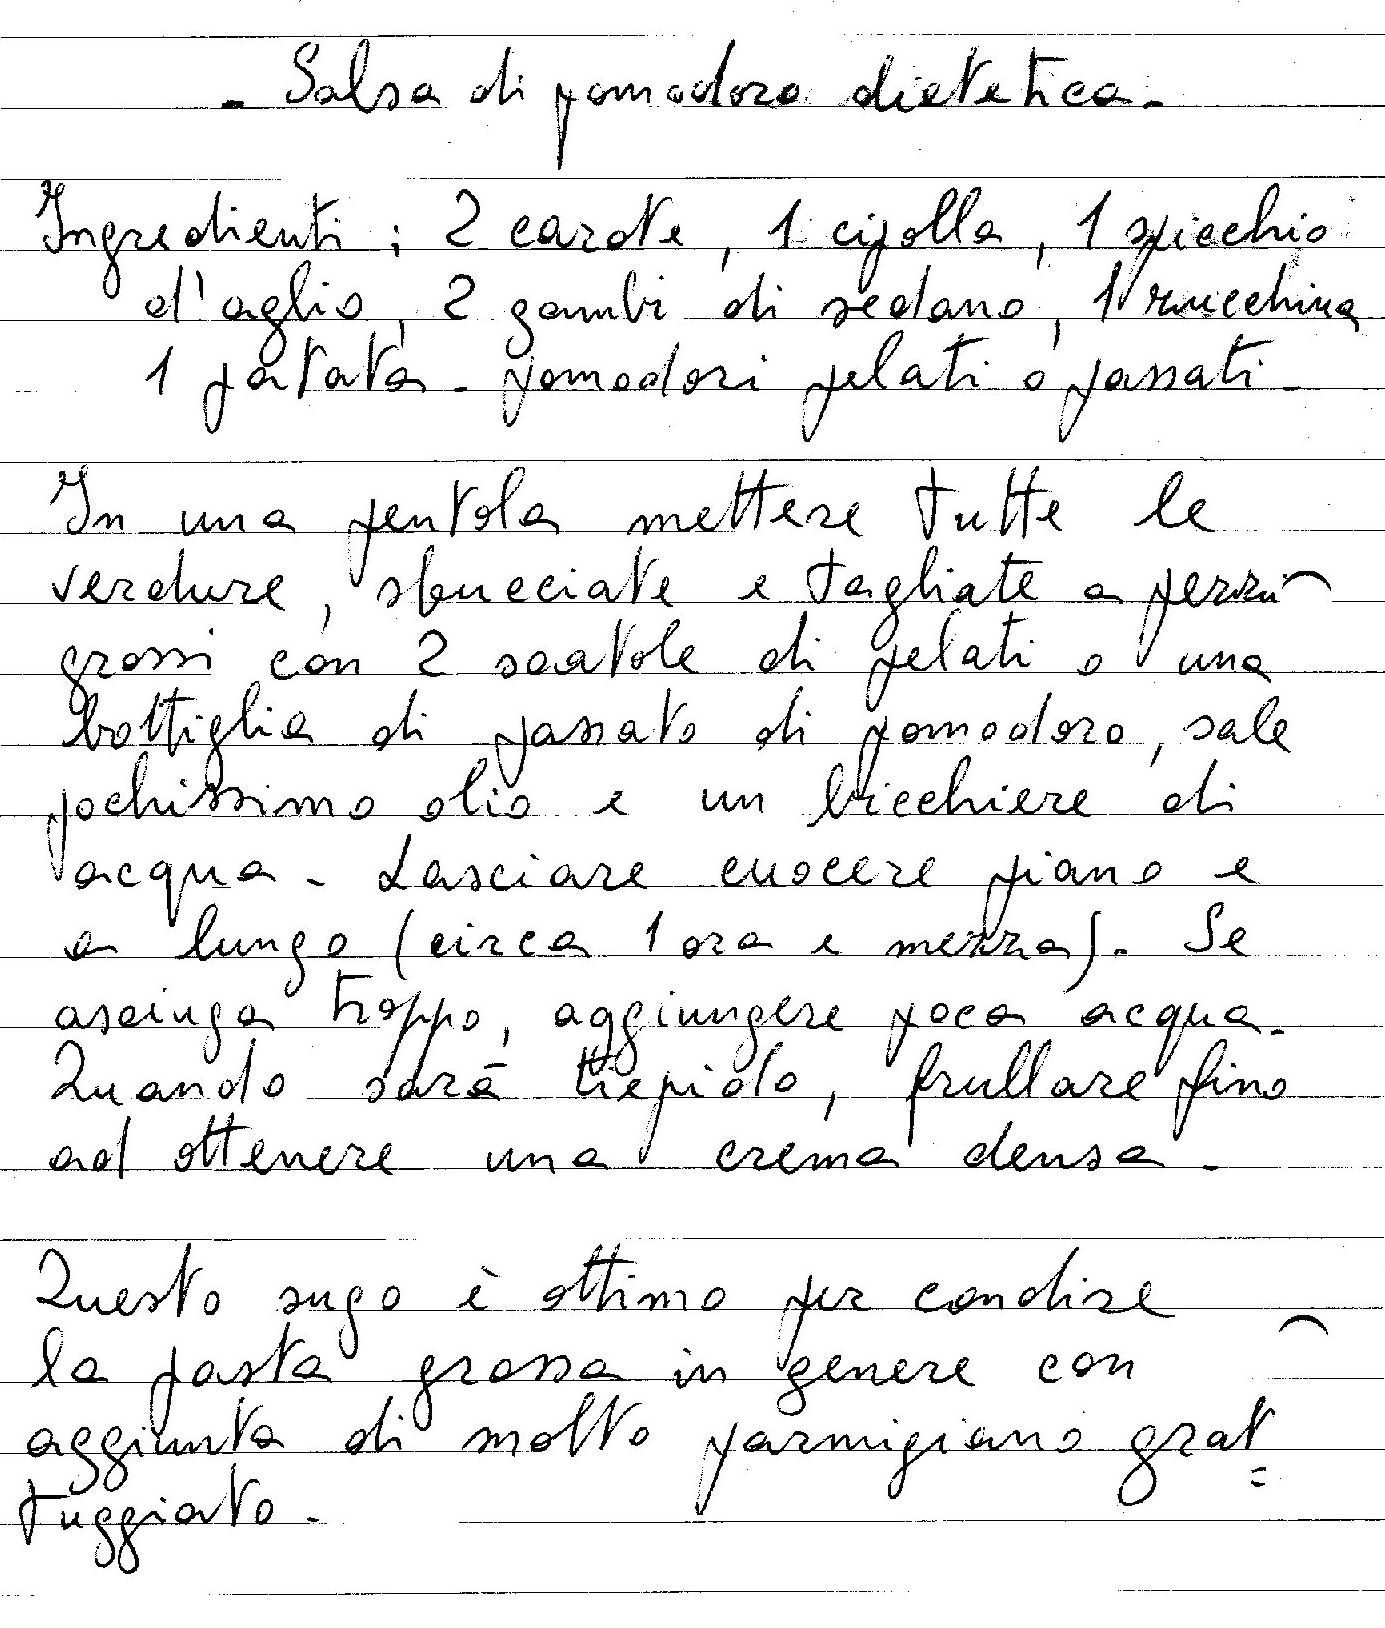 - Salsa di pomodoro dietetica -
Ingredienti : 2 carote, 1 cipolla, 1 spicchio
d'aglio, 2 gambi di sedano, 1 zucchina
1 patata - pomodori pelati o passati -
In una pentola mettere tutte le
verdure, sbucciate e tagliate a pezzi
grossi con 2 scatole di pelati o una
bottiglia di passato di pomodoro, sale
pochissimo olio e un bicchiere di
acqua - Lasciare cuocere piano e
a lungo (circa 1 ora e mezza). Se
asciuga troppo, aggiungere poca acqua.
Quando sarà tiepido, frullare fino
ad ottenere una crema densa -
Questo sugo è ottimo per condire
la pasta grossa in genere con
aggiunta di molto parmigiano grat=
tuggiato -